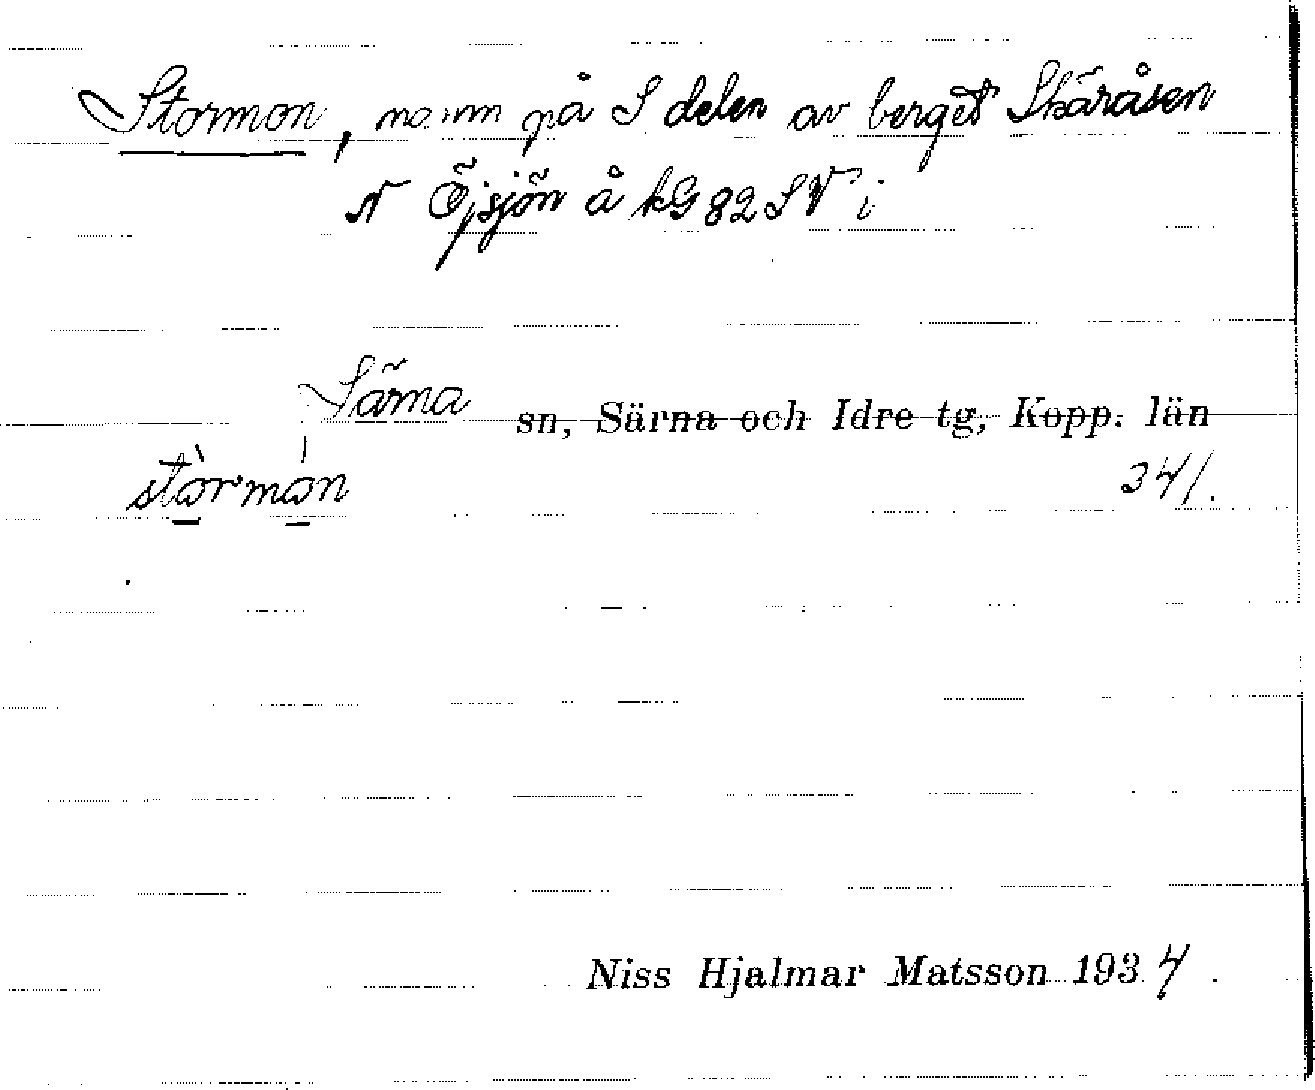 Stormon, namn på S delen av berget Skäråsen
N Öjsjön å kG 82 SV i
Särna sn, Särna och Idre tg, Kopp. län
stòrmo̱n
341.
Niss Hjalmar Matsson 1934.